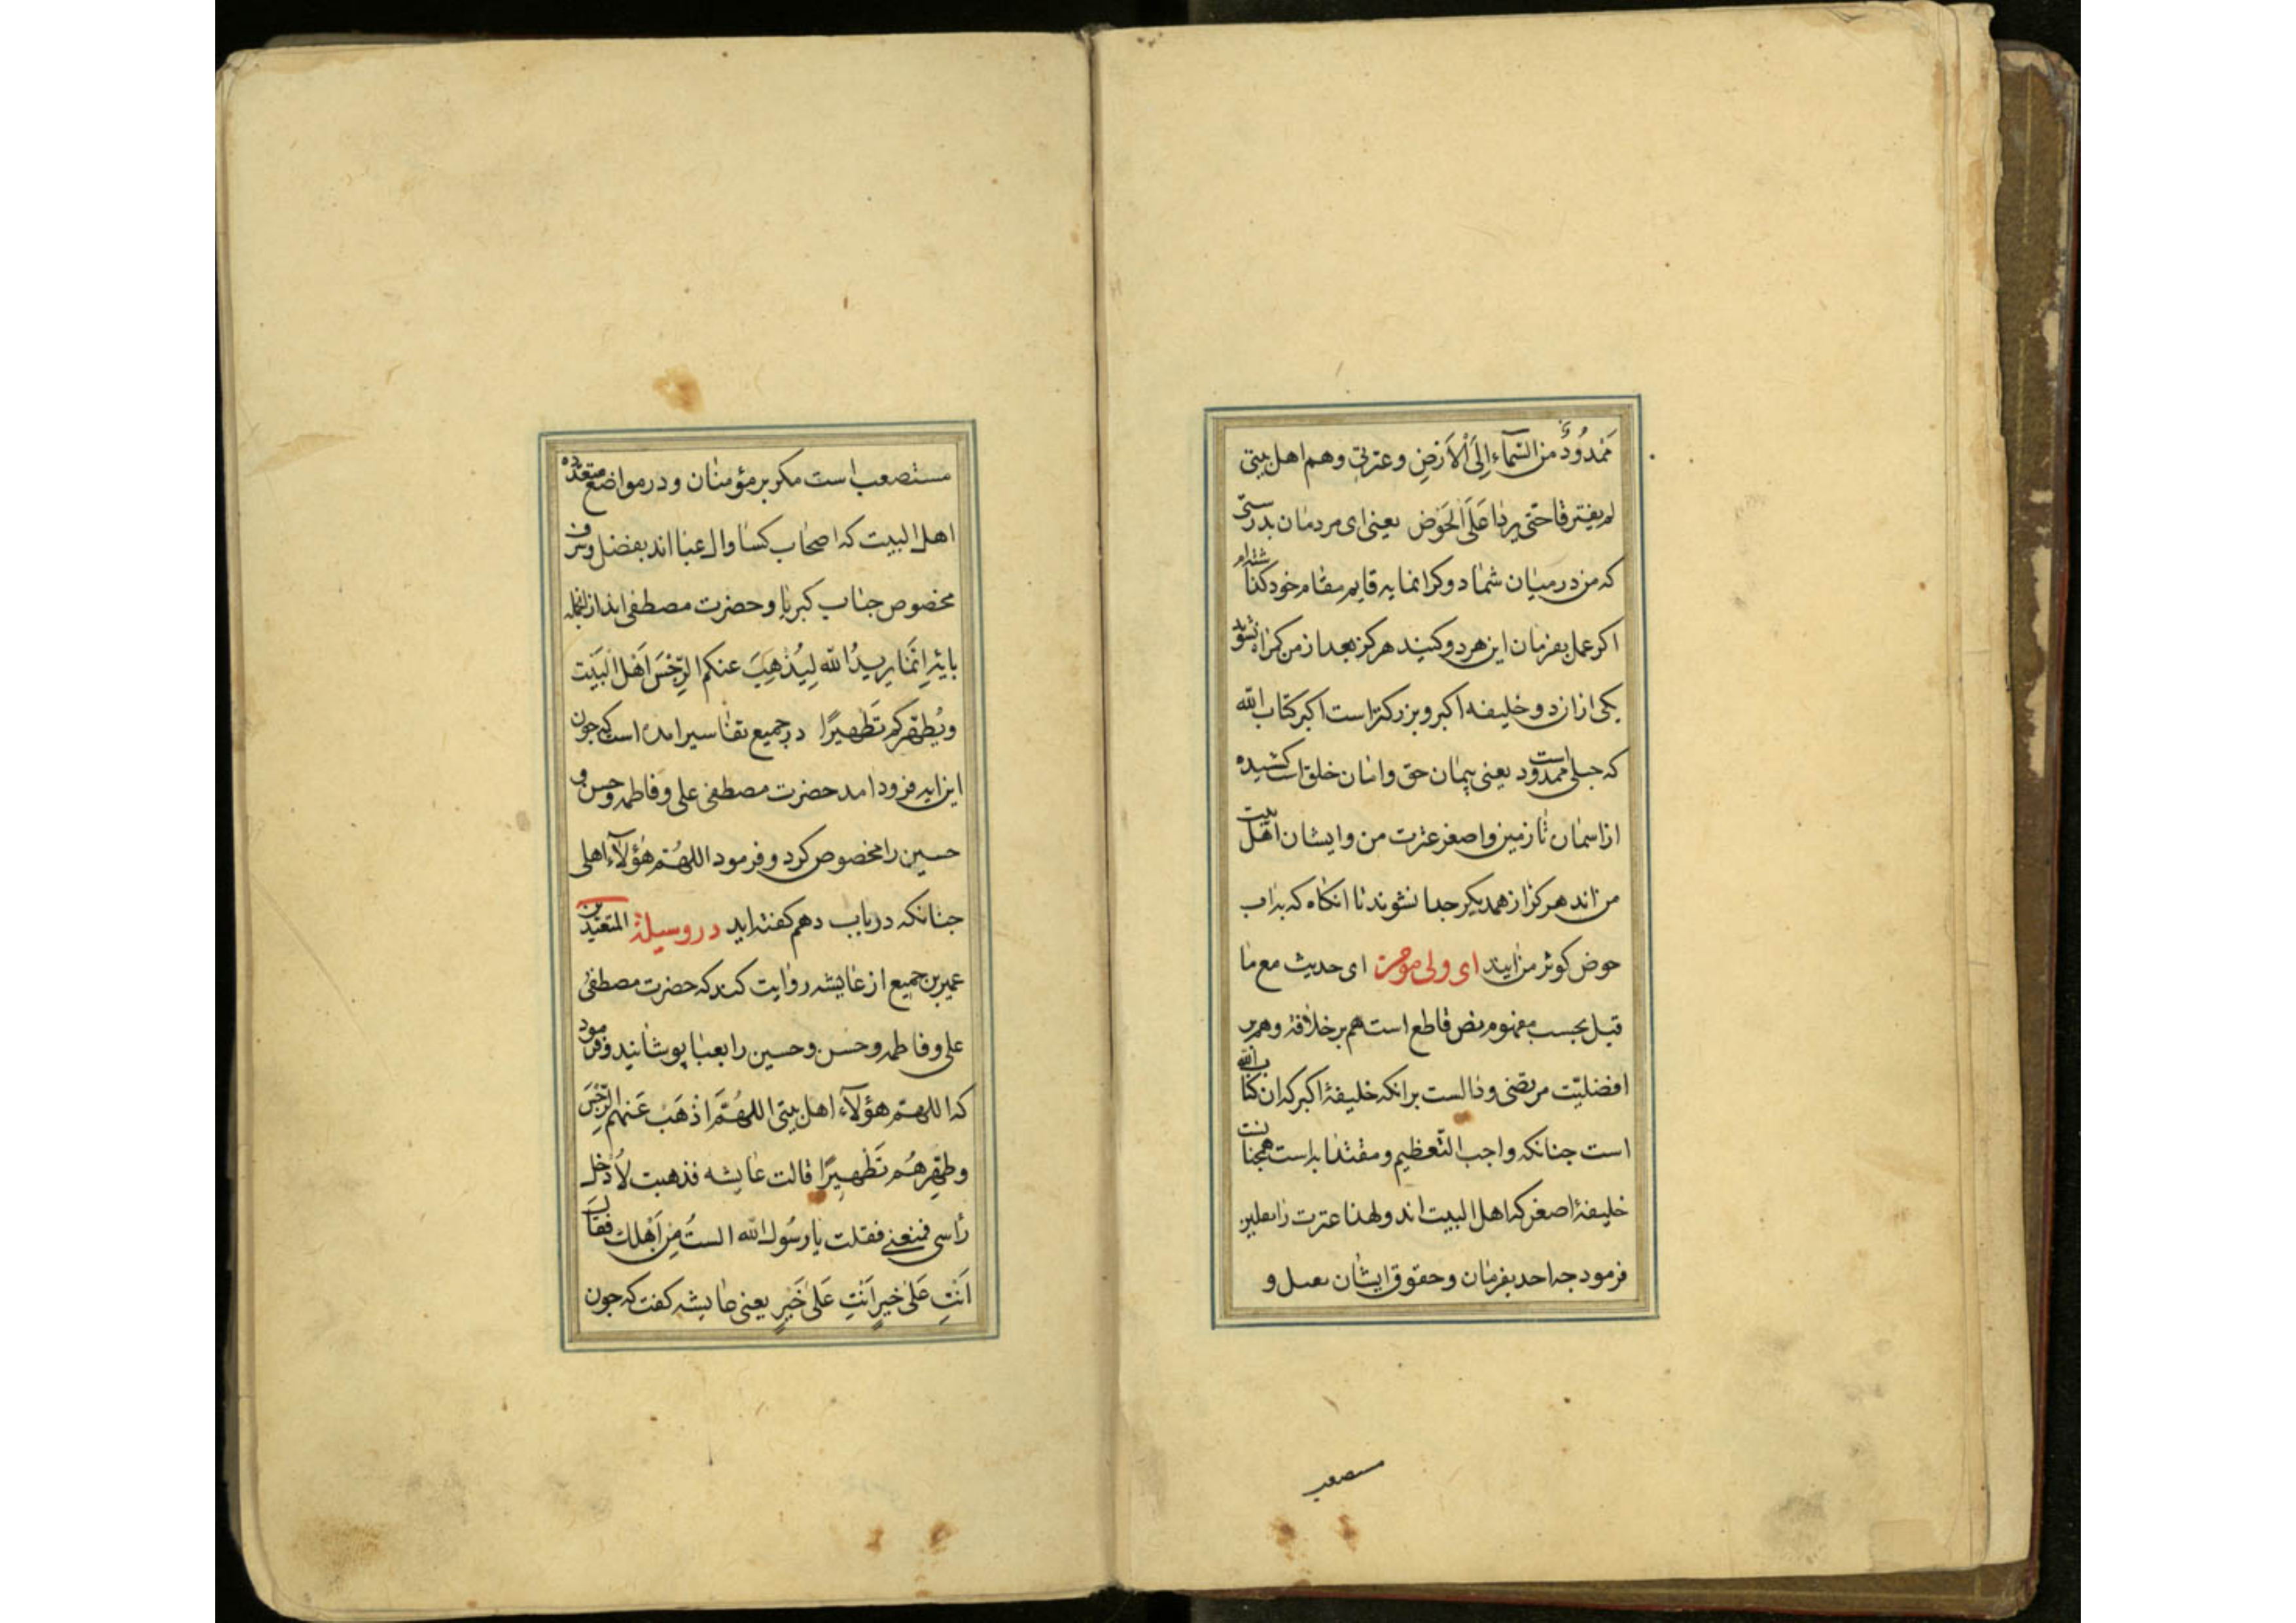 مَمْدُودٌ من السَّمآءِ اِلَى الْاَرْضِ وعترتی وهم اهل بیتی
لم یفترقا حتّی یردا عَلَیَّ الحَوْض یعنی ای مردمان بدرستی
که من در میان شما دو کرانمایه قایم مقام خود کذاشته‌ام
اکر عمل بفرمان این هر دو کنید هرکز بعد از من کمراه نشوید
یکی از ان دو خلیفه اکبر و بزرکتر است اکبر کتاب الله
که حبلی ممدود است یعنی پیمان حق و امان خلق است کشیده
از اسمان تا زمین و اصغر عترت من و ایشان اهل بیت
من اند هرکز از همدیکر جدا نشوند تا انکاه که بر اب
حوض کوثر من ایند ای ولی مومن ای حدیث مع ما
قبل بحسب مفهوم نص قاطع است هم بر خلافة و هم بر
افضلیّت مرتضی و دالست بر انکه خلیفهٔ اکبر که ان کتاب الله
است جنانکه واجب التّعظیم و مقتدا به است همجنانت
خلیفهٔ اصغر که اهل البیت اند و لهذا عترت را
فرمود جه احد بفرمان و حقوق ایشان و
مستصعب
مستصعب است مکر بر مؤمنان و در مواضع متعدّده
اهل البیت که اصحاب کسا و ال عبا اند بفضل و شرف
مخصوص جناب کبریا و حضرت مصطفی اند از انجمله
بایهٔ اِنَّمَا یریدُ الله لِیُذْهِبَ عنکم الرِّجْسَ اَهْلَ الْبَیْت
ویُطَهِّرکم تَطْهیرًا در جمیع تفاسیر امده است که جون
این ایه فرود امد حضرت مصطفی علی و فاطمه و حسن و
حسین را مخصوص کرد و فرمود اللهُمَّ هٰؤُلآءِ اهلی
جنانکه در باب دهم کفته اید در وسیلة المتعبّدین
عمیر بن جمیع از عایشه روایت کند که حضرت مصطفی
علی و فاطمه و حسن و حسین را بعبا پوشانید و فرمود
که اللهمّ هؤلآء اهل بیتی اللهُمَّ اَذْهَبْ عَنهم الرِّجْسَ
وطهِّرهُم تَطْهیرًا قالت عایشه فذهبت لاُدْخل
رأسی فمنعنی فقلت یا رسُول الله الستُ مِن اَهْلك فقال
اَنْتِ عَلیٰ خیرٍ اَنْتِ عَلیٰ خَیْرٍ یعنی عایشه کفت که جون